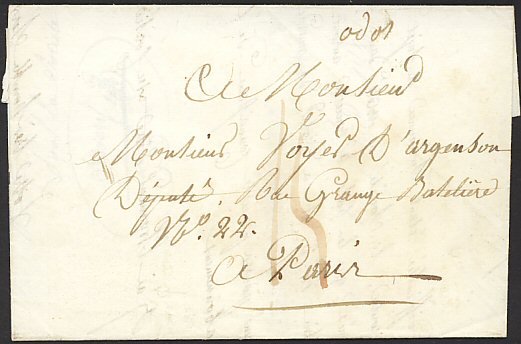 A Monsieur
Monsieur Voyer D'argenson
Député, Rue Grange Batelière
N.º 22.
A Paris
15